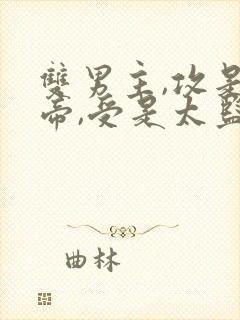 雙男主,攻是
帝,受是太監
曲林